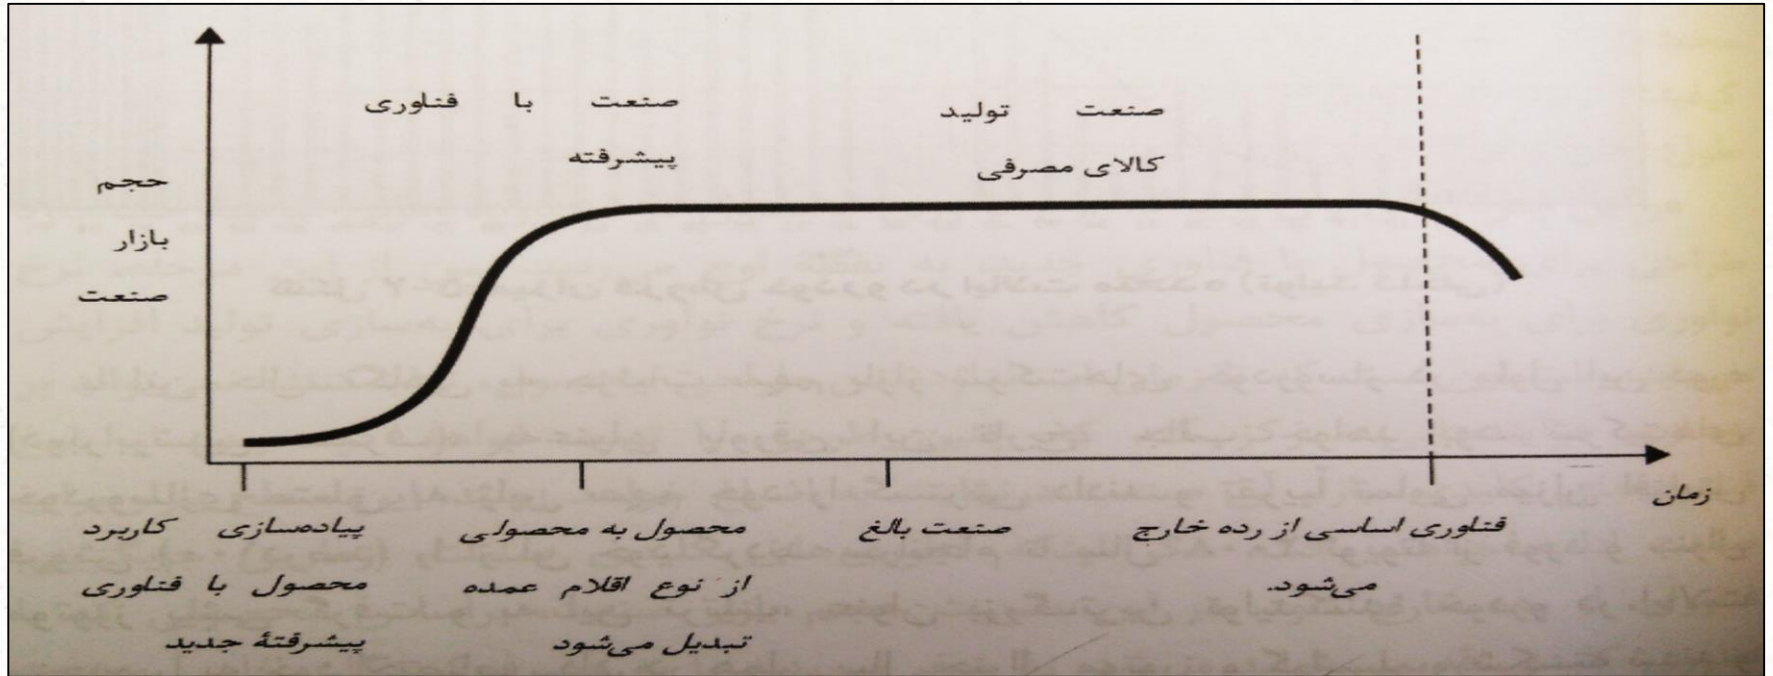 صنعت با فناوری
پیشرفته
صنعت تولید
کالای مصرفی
حجم
بازار
صنعت
زمان
پیاده‌سازی کاربرد
محصول با فناوری
پیشرفتهٔ جدید
محصول به محصولی
از نوع اقلام عمده
تبدیل می‌شود
صنعت بالغ
فناوری اساسی از رده خارج
می‌شود.